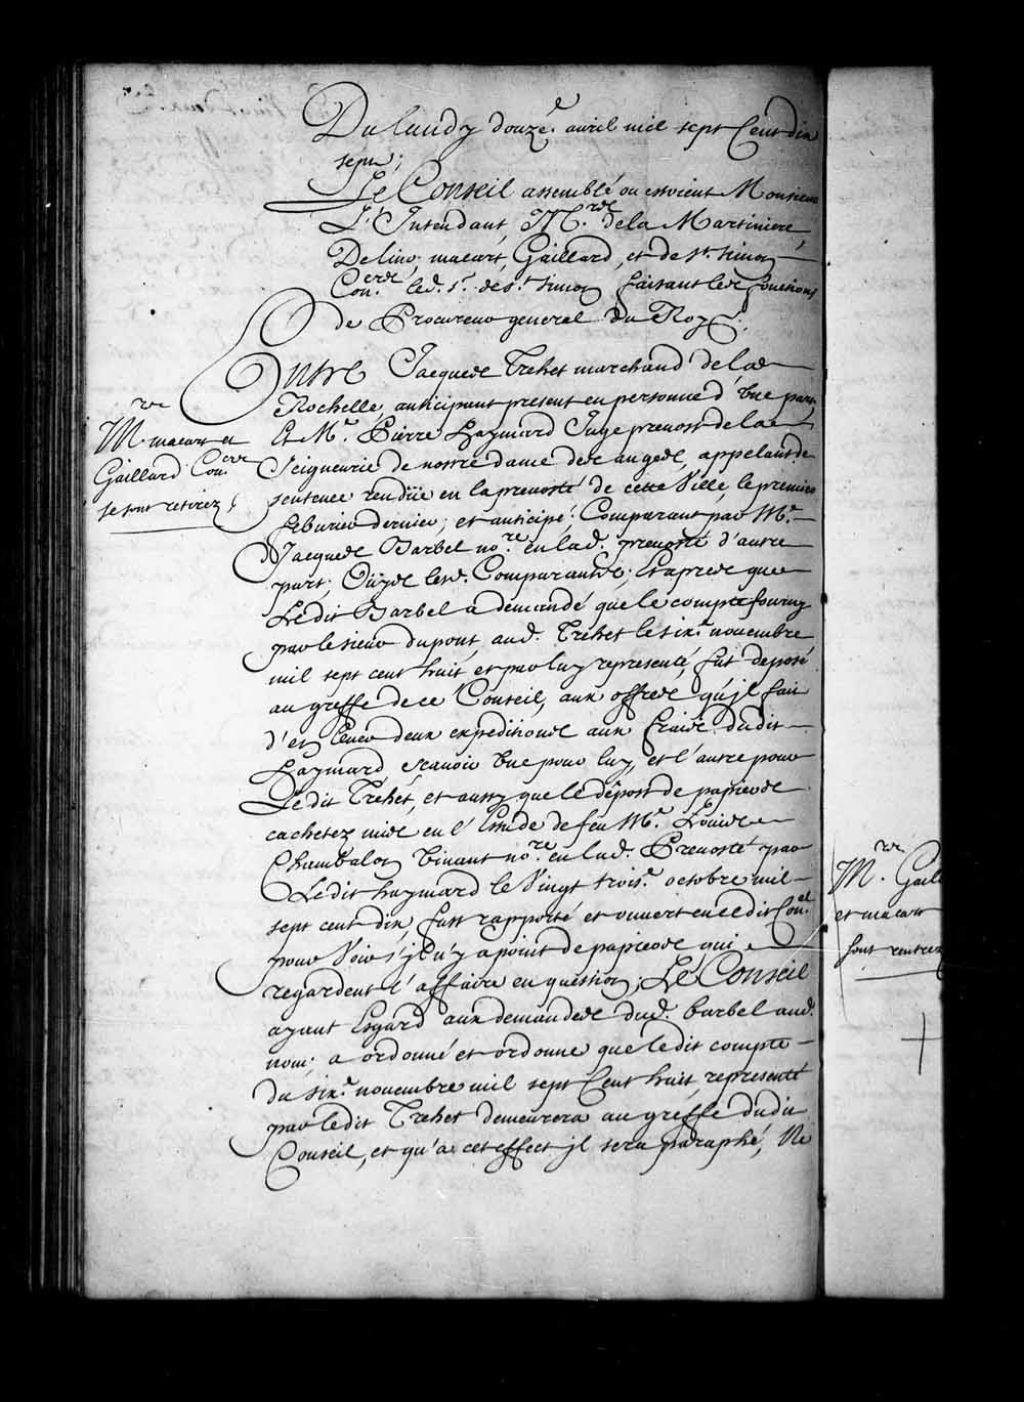 Du lundy douze.e avril mil sept Cent dix
sept;
Le Conseil assemblé ou estoient Monsieur
L'Intendant, M.rs de la Martiniere,
Delino, macart, Gaillard, et de st. simon
Con.ers led. s.r de s.t simon faisant les fonctions
de Procureur general du Roy;
Entre Jacques Trehet marchand de la
Rochelle, anticipant present en personne d'Vne part,
Et M.e Pierre haymard Juge prevost de la
Seigneurie de nostre dame des anges, appelant de
sentence rendüe en la prevosté de cette Ville, le premier
febvrier dernier, et anticipé, Comparant par M.e
Jacques Barbel no.re en lad. prevosté d'autre
part; Oüys lesd. Comparants; Et apres que
Ledit Barbel a demandé que le compte fourny
par le sieur dupont, aud. Trehet le six.e novembre
mil sept cent huit et par luy representé, fut deposé
au greffe de ce Conseil, aux offres qu'jl fait
d'en lever deux expeditions aux fraix dudit
haymard scavoir Vne pour luy, et l'autre pour
Ledit Trehet, et aussy que le dépost de papiers
cachetez mis en l'Etude de feu M.e Louis
Chambalon Vivant no.re en lad. Prevosté par
Ledit haymard le Vingt trois.e octobre mil
sept cent dix, fust rapporté et ouvert en cedit Con.el
pour Voir s'jl n'y a point de papiers qui
regardent l'affaire en question; Le Conseil
ayant Esgard aux demandes dud. barbel aud.
nom; a ordonné et ordonne que ledit compte
du six.e novembre mil sept Cent huit, representé
par ledit Trehet demeurera au greffe dudit
Conseil, et qu'a cet effect jl sera paraphé, Ne
M.rs macart et
Gaillard Con.ers
se sont retirez
M.rs Gaill
et macart
sont rentrez